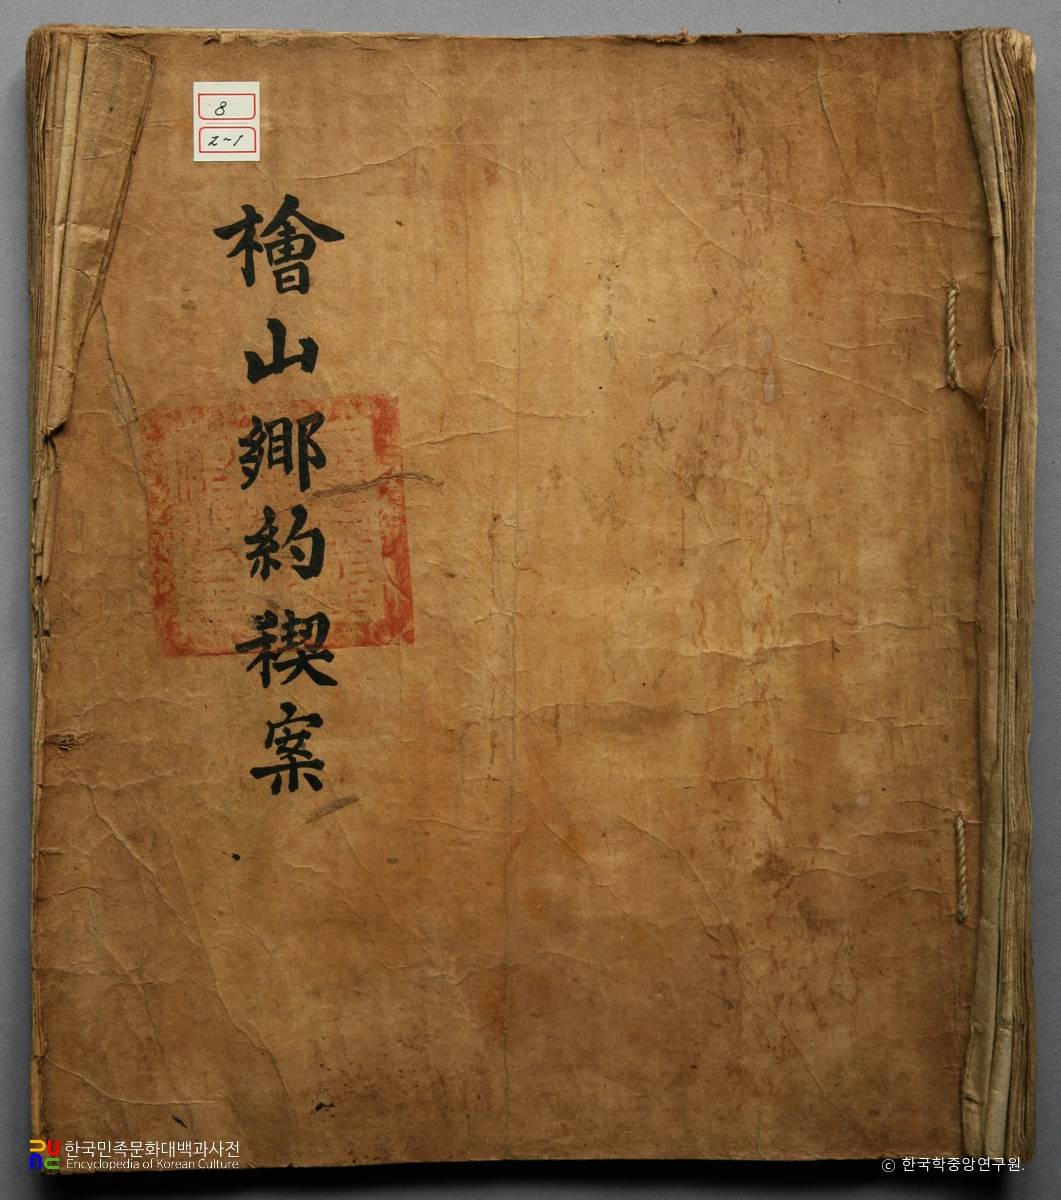 8
2~1
檜山鄕約禊案
한국민족문화대백과사전
Encyclopedia of Korean Culture
© 한국학중앙연구원.